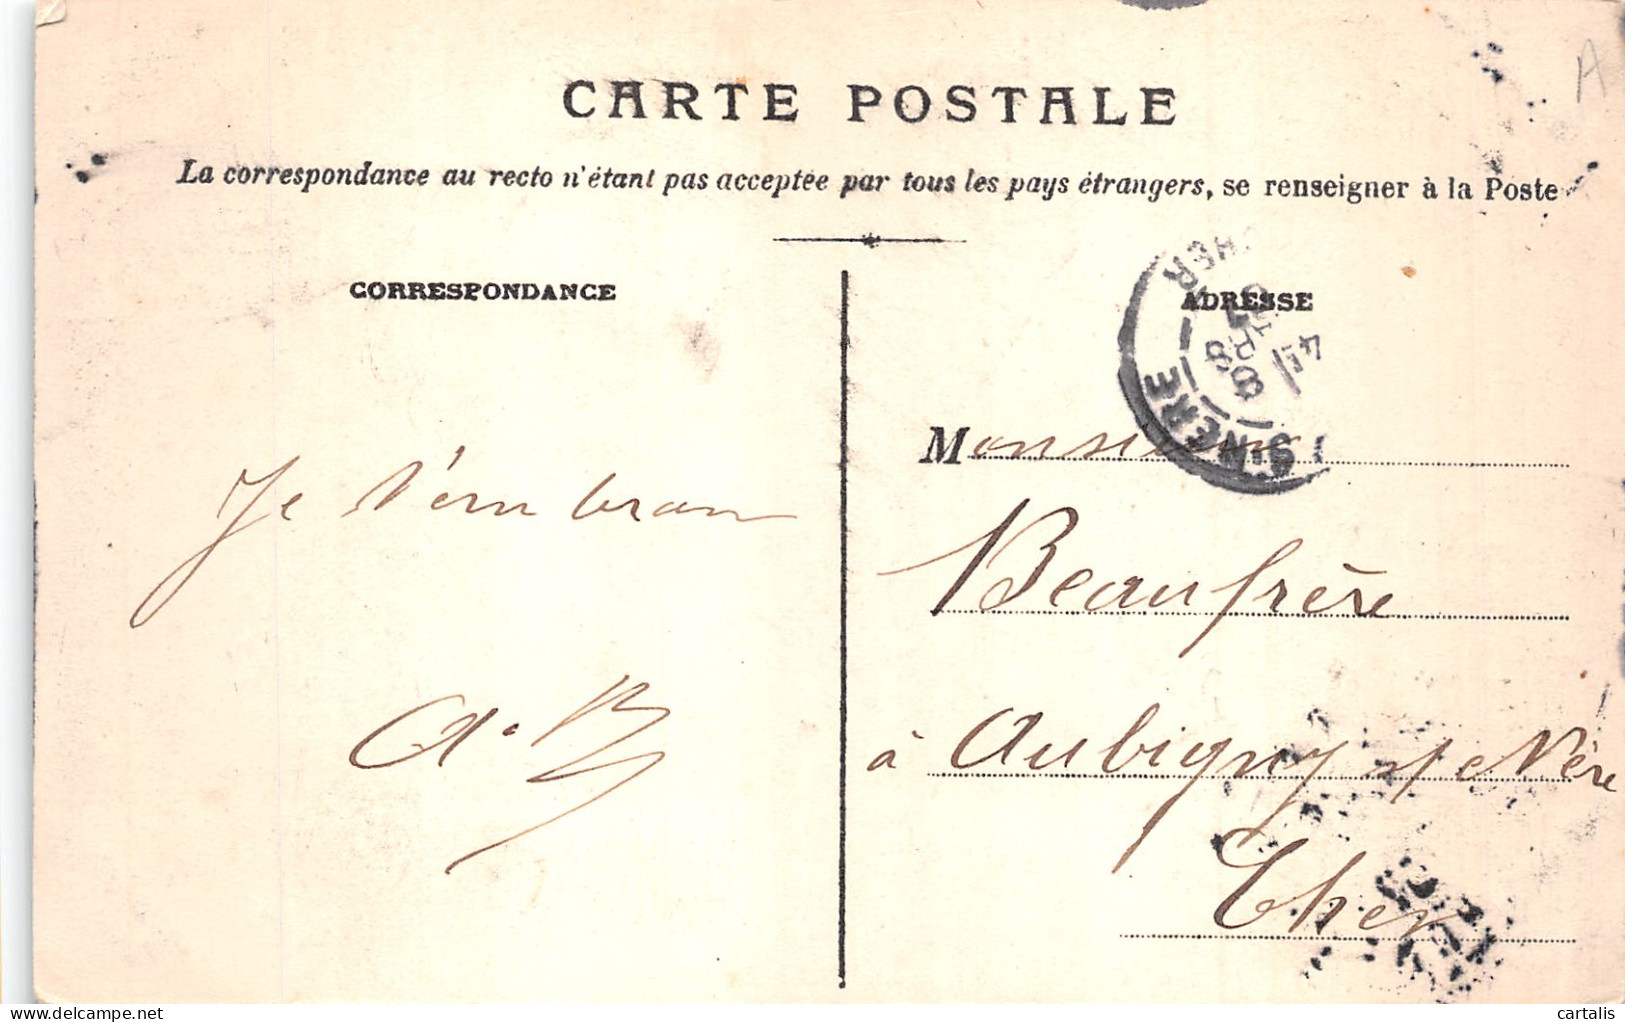 CARTE POSTALE
La correspondance au recto n'étant pas acceptée par tous les pays étrangers, se renseigner à la Poste
CORRESPONDANCE
ADRESSE
Je t'embrasse
A. B
Monsieur
Beaufrère
à Aubigny s/ Nère
Cher
CHER
NERE
07
8
A
www.delcampe.net
cartalis